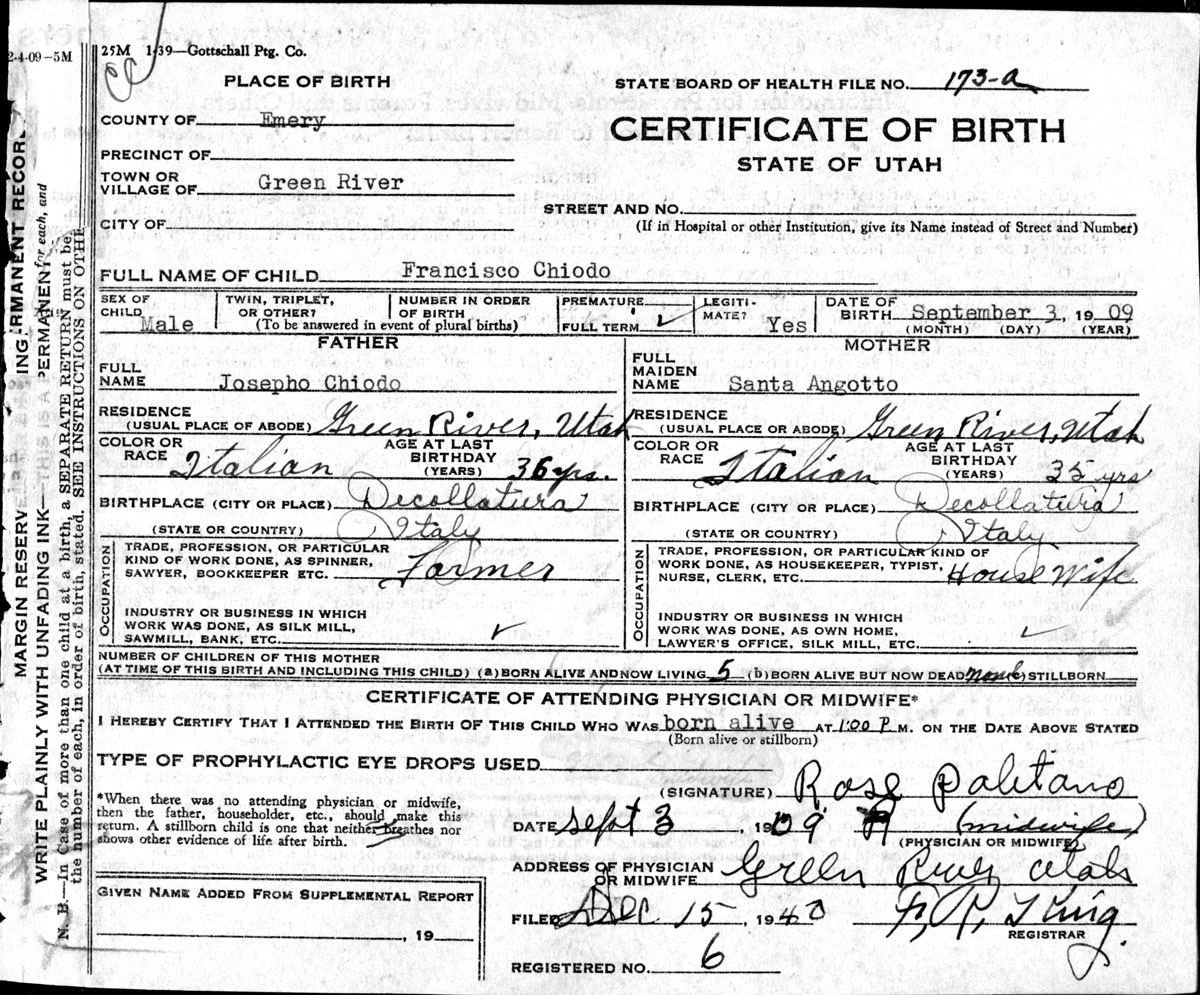 2-4-09-5M
25M 1-39—Gottschall Ptg. Co.
PLACE OF BIRTH
COUNTY OF Emery
PRECINCT OF
TOWN OR
VILLAGE OF Green River
CITY OF
STATE BOARD OF HEALTH FILE NO. 173-a
CERTIFICATE OF BIRTH
STATE OF UTAH
STREET AND NO.
(If in Hospital or other Institution, give its Name instead of Street and Number)
FULL NAME OF CHILD Francisco Chiodo
SEX OF
CHILD Male
TWIN, TRIPLET,
OR OTHER?
NUMBER IN ORDER
OF BIRTH
(To be answered in event of plural births)
PREMATURE
FULL TERM ✓
LEGITI-
MATE? Yes
DATE OF
BIRTH September 3, 19 09
(MONTH) (DAY) (YEAR)
FATHER
FULL
NAME Josepho Chiodo
RESIDENCE
(USUAL PLACE OF ABODE) Green River, Utah
COLOR OR
RACE Italian
AGE AT LAST
BIRTHDAY
(YEARS) 36 yrs.
BIRTHPLACE (CITY OR PLACE) Decollatura
(STATE OR COUNTRY) Italy
OCCUPATION
TRADE, PROFESSION, OR PARTICULAR
KIND OF WORK DONE, AS SPINNER,
SAWYER, BOOKKEEPER ETC. Farmer
INDUSTRY OR BUSINESS IN WHICH
WORK WAS DONE, AS SILK MILL,
SAWMILL, BANK, ETC. ✓
MOTHER
FULL
MAIDEN
NAME Santa Angotto
RESIDENCE
(USUAL PLACE OR ABODE) Green River, Utah
COLOR OR
RACE Italian
AGE AT LAST
BIRTHDAY
(YEARS) 35 yrs
BIRTHPLACE (CITY OR PLACE) Decollatura
(STATE OR COUNTRY) Italy
OCCUPATION
TRADE, PROFESSION, OR PARTICULAR KIND OF
WORK DONE, AS HOUSEKEEPER, TYPIST,
NURSE, CLERK, ETC. House Wife
INDUSTRY OR BUSINESS IN WHICH
WORK WAS DONE, AS OWN HOME,
LAWYER'S OFFICE, SILK MILL, ETC. ✓
NUMBER OF CHILDREN OF THIS MOTHER
(AT TIME OF THIS BIRTH AND INCLUDING THIS CHILD) (a) BORN ALIVE AND NOW LIVING 5 (b) BORN ALIVE BUT NOW DEAD None (c) STILLBORN
CERTIFICATE OF ATTENDING PHYSICIAN OR MIDWIFE*
I HEREBY CERTIFY THAT I ATTENDED THE BIRTH OF THIS CHILD WHO WAS born alive AT 1:00 P M. ON THE DATE ABOVE STATED
(Born alive or stillborn)
TYPE OF PROPHYLACTIC EYE DROPS USED
*When there was no attending physician or midwife,
then the father, householder, etc., should make this
return. A stillborn child is one that neither breathes nor
shows other evidence of life after birth.
(SIGNATURE) Rose Palitano
DATE Sept 3, 1909 (midwife)
(PHYSICIAN OR MIDWIFE)
ADDRESS OF PHYSICIAN
OR MIDWIFE Green River Utah
FILED Dec 15, 1940 King
REGISTRAR
REGISTERED NO. 6
GIVEN NAME ADDED FROM SUPPLEMENTAL REPORT
, 19
MARGIN RESERV ING RMANENT RECOR
WRITE PLAINLY WITH UNFADING INK—THIS IS A PERMANENT
for each, and
N. B.—In Case of more than one child at a birth, a SEPARATE RETURN must be
the number of each, in order of birth, stated. SEE INSTRUCTIONS ON OTHE